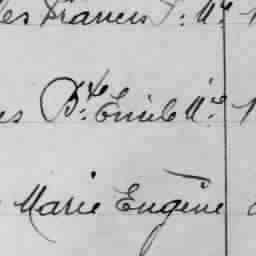 les Francis J: Mᵉ
es Bᵗᵉ: Emile Mᵉ
Marie Eugène